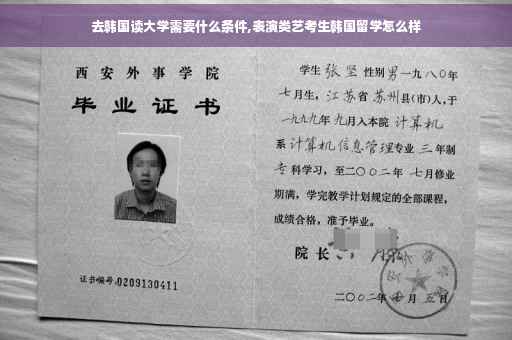 去韩国读大学需要什么条件,表演类艺考生韩国留学怎么样
西安外事学院
毕业证书
证书编号:0209130411
学生 张坚 性别 男 一九八〇年
七月生，江苏省 苏州县(市)人,于
一九九九年 九月入本院 计算机
系 计算机信息管理专业 三 年制
专科学习，至二〇〇二年 七月修业
期满，学完教学计划规定的全部课程，
成绩合格，准予毕业。
院长
二〇〇二年 七 月 五 日